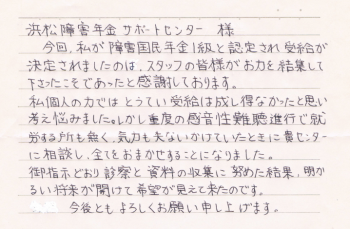 浜松障害年金サポートセンター 様
今回、私が障害国民年金1級と認定され受給が
決定されましたのは、スタッフの皆様がお力を結集して
下さったこそであったと感謝しております。
私個人の力ではとうてい受給は成し得なかったと思い
考え悩みました。しかし重度の感音性難聴進行で就
労する所も無く、気力も失ないかけていたときに貴センター
に相談し、全てをおまかせすることになりました。
御指示どおり診察と資料の収集に努めた結果、明か
るい将来が開けて希望が見えて来たのです。
今後ともよろしくお願い申し上げます。